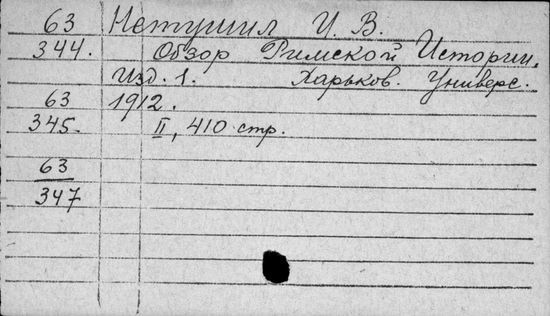 63 Нетушил И. В.
344. Обзор Римской Истории.
Изд. 1. Харьков. Универс.
63 1912.
345. II, 410 стр.
63
347